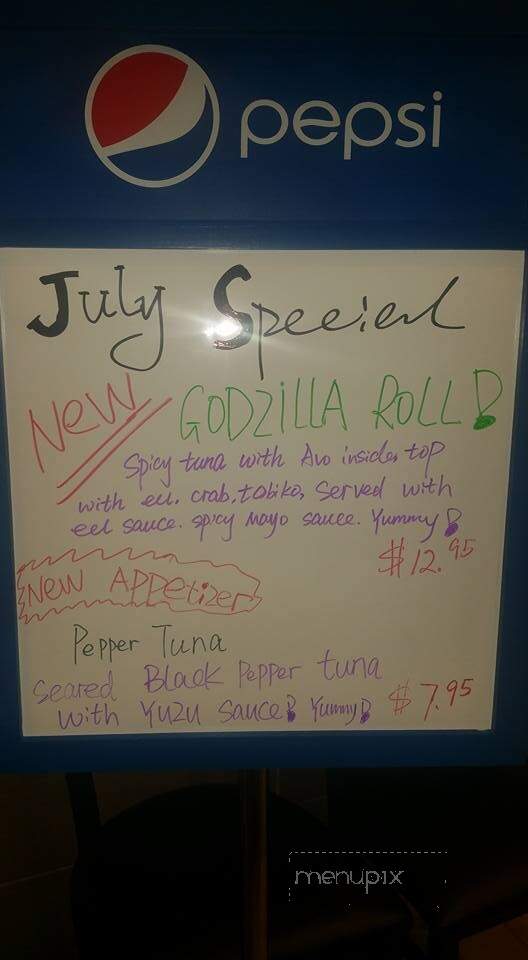 pepsi
July Special
New GODZILLA ROLL!
Spicy tuna with Avo inside, top
with eel. crab, tobiko, Served with
eel sauce. spicy mayo sauce. Yummy!
$12.95
New APPetizer
Pepper Tuna
Seared Black Pepper tuna
with Yuzu sauce! Yummy! $7.95
menupix